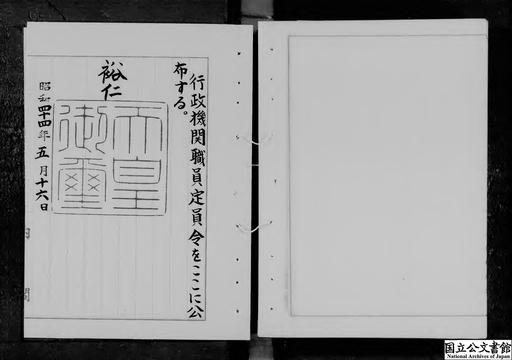 行政機関職員定員令をここに公
布する。
裕仁
天皇
御璽
昭和四十四年五月十六日
内閣
国立公文書館
National Archives of Japan